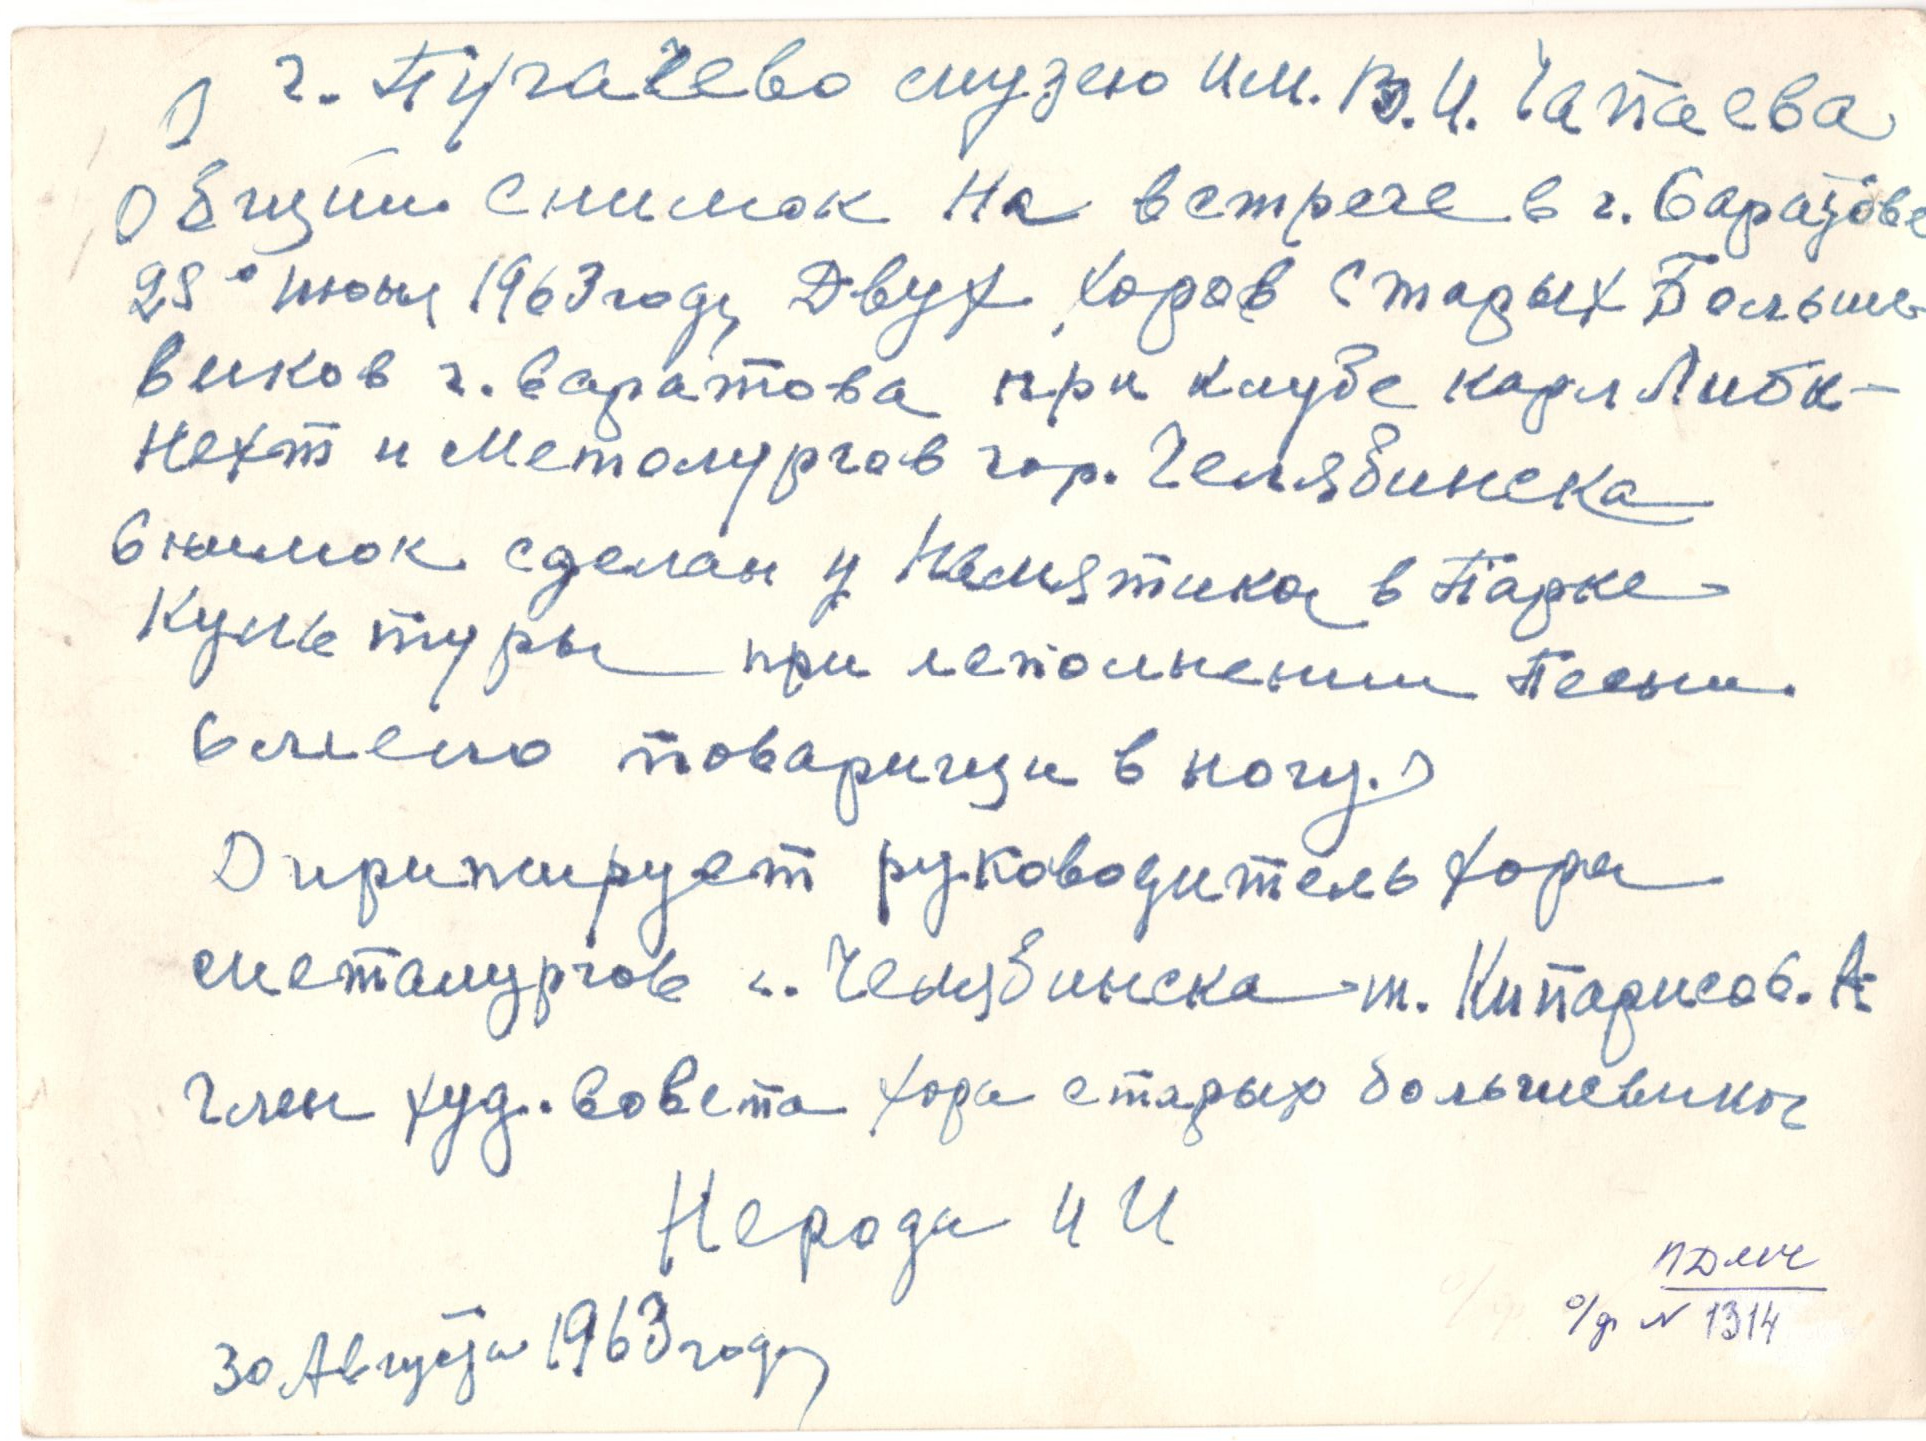 г. Пугачево музею им. В.И. Чапаева
Общий снимок на встрече в г. Саратове
29го июня 1963 году Двух хоров Старых Больше-
виков г. Саратова при клубе карл Либк-
Нехт и Металургов гор. Челябинска
Снимок сделан у Памятника в Парке
Культуры при исполнении Песни.
Смело товарищи в ногу.)
Дирижирует руководитель хора
металургов г. Челябинска т. Кипарисов. А
Член худ. Совета хора старых большевиков
Нерода И И
30 Августа 1963 году
ПДМЧ
о/ф N 1314